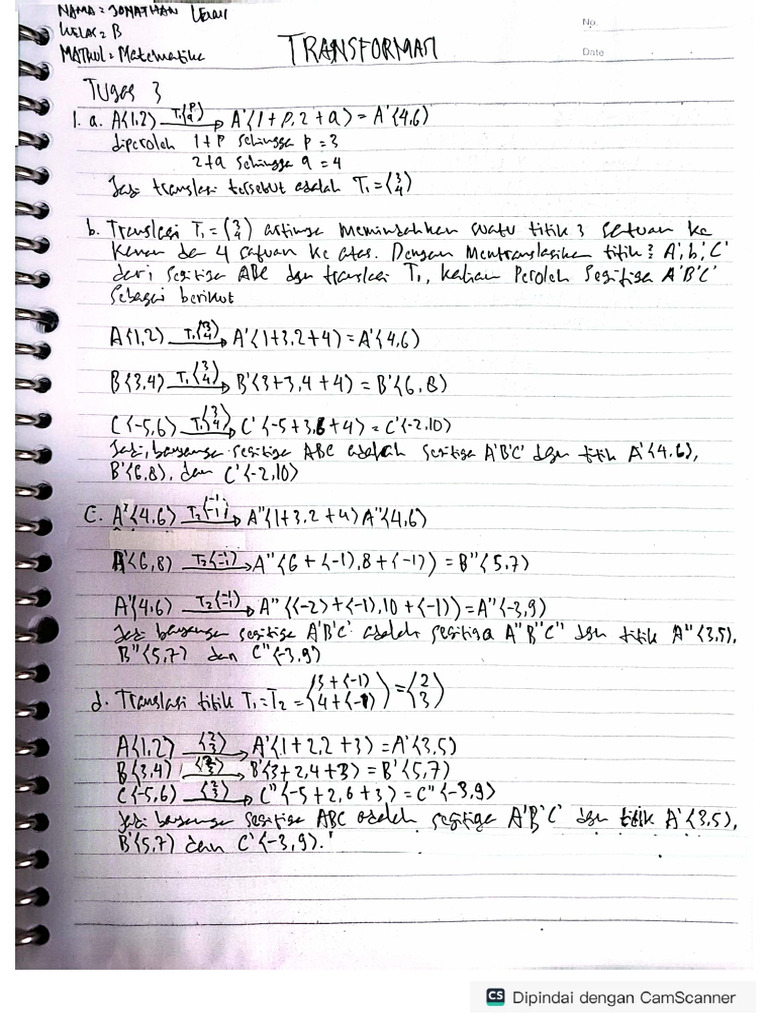 NAMA = JONATHAN
KELAS = B
MATKUL = Matematika
TRANSFORMASI
No.
Date
Tugas 3
1. a. A(1,2) T₁(p q)→ A'(1+p,2+q) = A'(4,6)
diperoleh 1+p sehingga p = 3
2+q sehingga q = 4
Jadi translasi tersebut adalah T₁ = (3 4)
b. Translasi T₁ = (3 4) artinya memindahkan suatu titik 3 satuan ke
kanan dan 4 satuan ke atas. Dengan Mentranslasikan titik² A', b', C'
dari segitiga ABC dgn translasi T₁, kalian Peroleh Segitiga A'B'C'
Sebagai berikut
A(1,2) T₁(3 4)→ A'(1+3,2+4) = A'(4,6)
B(3,4) T₁(3 4)→ B'(3+3,4+4) = B'(6,8)
C(-5,6) T₁(3 4)→ C'(-5+3,6+4) = C'(-2,10)
Jadi, bayangan segitiga ABC adalah segitiga A'B'C' dgn titik A'(4,6),
B'(6,8), dan C'(-2,10)
C. A'(4,6) T₂(-1 -1)→ A''(1+3,2+4) A''(4,6)
A'(6,8) T₂(-1 -1)→ A''(6+(-1),8+(-1)) = B''(5,7)
A'(4,6) T₂(-1 -1)→ A''((-2)+(-1),10+(-1)) = A''(-3,9)
Jadi bayangan segitiga A'B'C' adalah segitiga A''B''C'' dgn titik A''(3,5),
B''(5,7) dan C''(-3,9)
d. Translasi titik T₁ = T₂ = (3+(-1) 4+(-1)) = (2 3)
A(1,2) (2 3)→ A'(1+2,2+3) = A'(3,5)
B(3,4) (2 3)→ B'(3+2,4+3) = B'(5,7)
C(-5,6) (2 3)→ C''(-5+2,6+3) = C''(-3,9)
Jadi bayangan segitiga ABC adalah segitiga A'B'C' dgn titik A'(3,5),
B'(5,7) dan C'(-3,9).
CS Dipindai dengan CamScanner